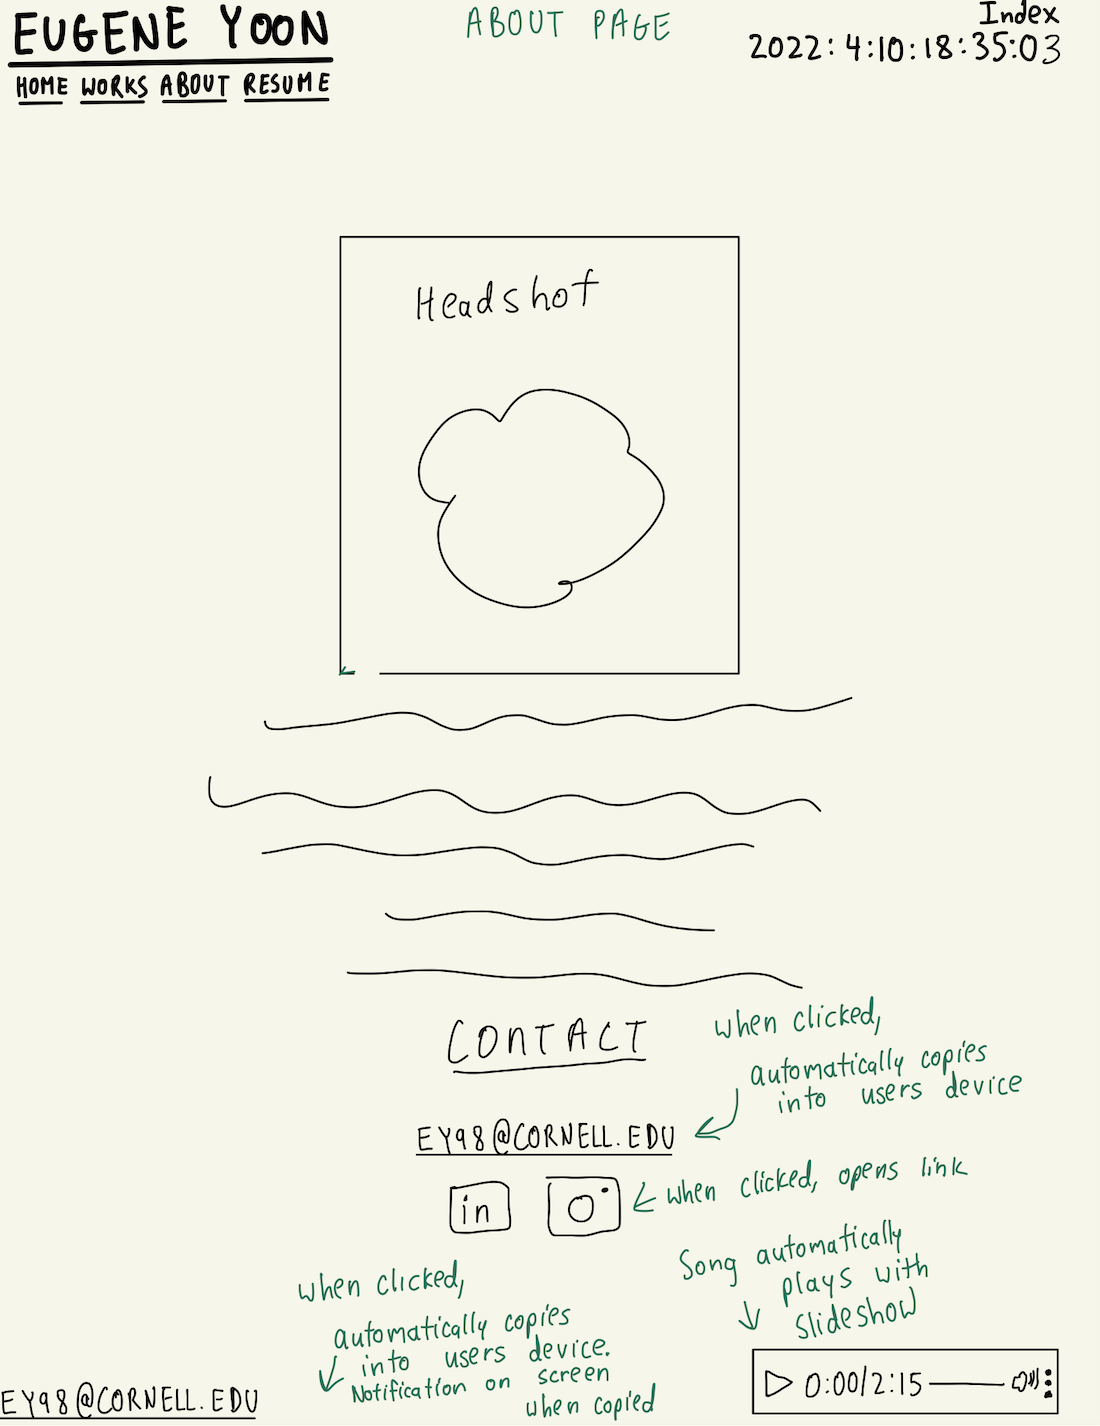 EUGENE YOON
HOME WORKS ABOUT RESUME
ABOUT PAGE
Index
2022:4:10:18:35:03
Headshot
CONTACT
when clicked,
automatically copies
into users device
EY98@CORNELL.EDU
in
when clicked, opens link
when clicked,
automatically copies
into users device.
Notification on screen
when copied
Song automatically
plays with
slideshow
EY98@CORNELL.EDU
0:00/2:15